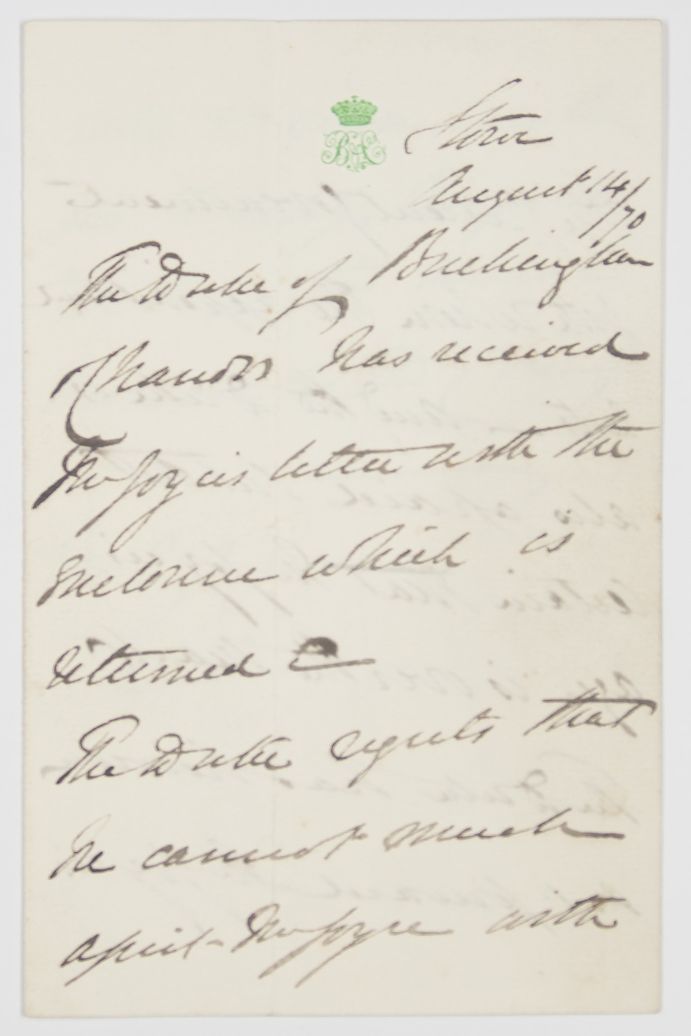 Stowe
August 14/70
The Duke of Buckingham
& Chandos has received
letter with the
enclosure which is
returned
The Duke regrets that
he cannot much
assist with